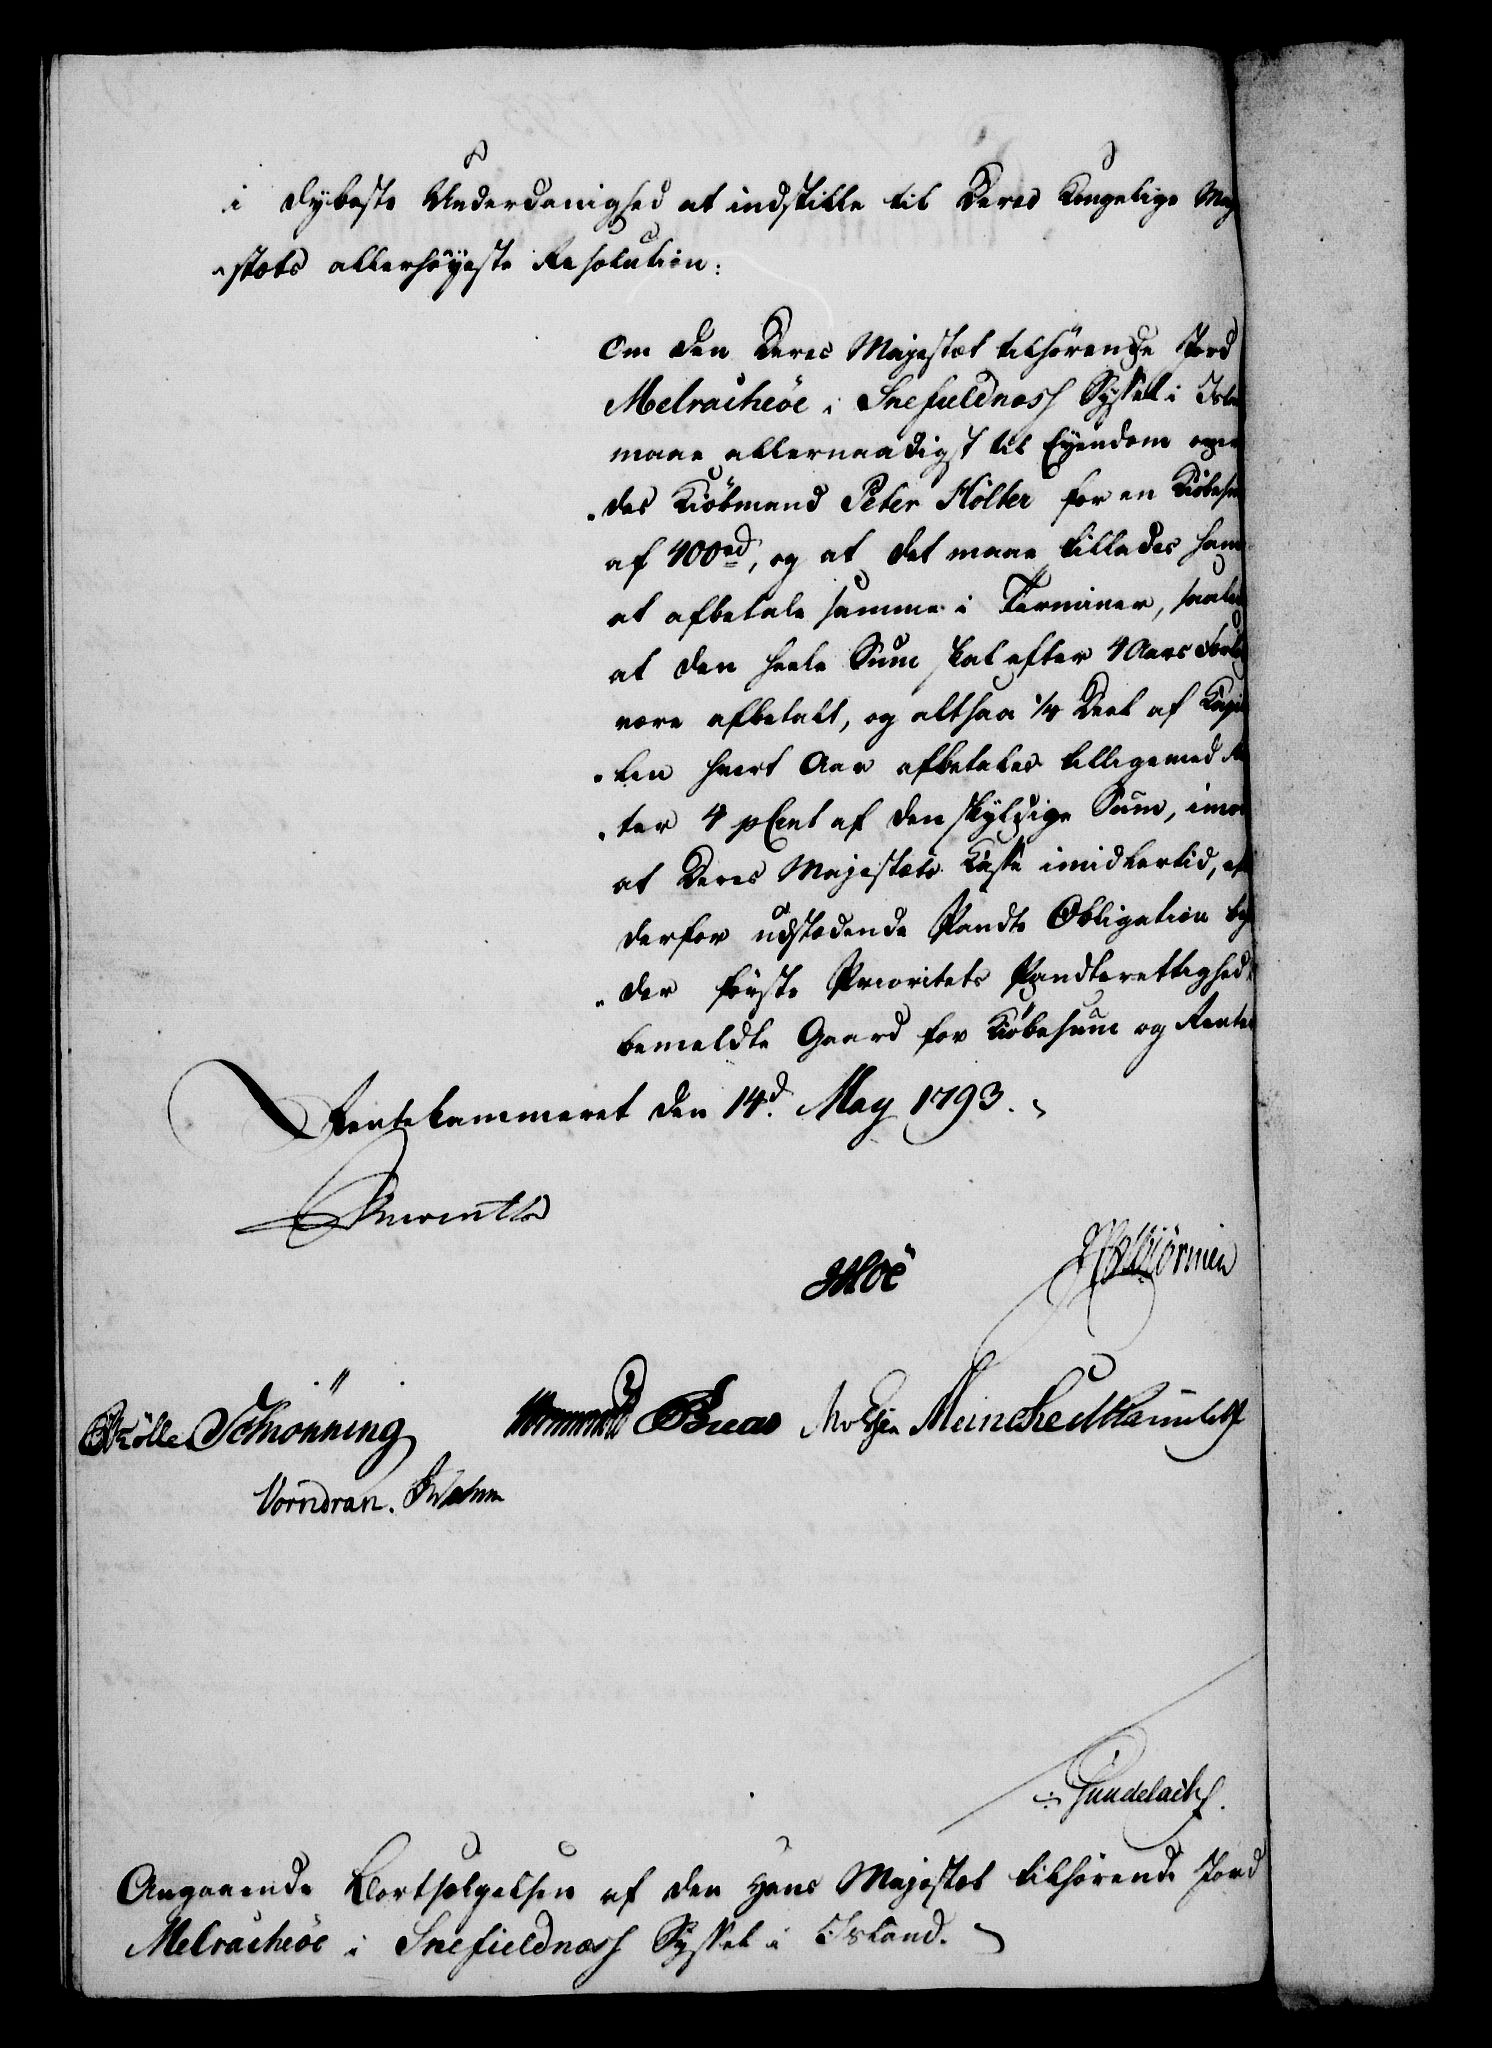 i dybeste Underdanighed at indstille til Deres Kongelige Maj
stæts allerhøyeste Resolution:
Om den Deres Majestæt tilhørende Jord
Melracheöe i Snefieldnæss Syssel i Isla
maae allernaadigst til Eyendom over
des Kiöbmand Peter Hölter for en Kiöbesu
af 400 rd, og at det maae tillades ham
at afbetale samme i Terminer, saale
at den heele Sum skal efter 4 Aars Forlø
være afbetalt, og altsaa 1/4 Deel af Kapi
len hvert Aar afbetales tilligemed Re
ter 4 pCent af den skyldige Sum, imod
at Deres Majestæts Kasse imidlertid, eft
derfor udstædende Pandte Obligation be
der første Prioritets Panderettighed i
bemeldte Gaard for Kiöbesum og Rente
Rentekammeret den 14d. May 1793.
Schiönning
Vorndran.
Gundelach.
Angaaende Bortsælgelsen af den Hans Majestæt tilhørende Jord
Melracheöe i Snefieldnæss Syssel i Island.